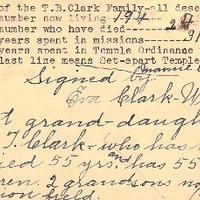 of the T.B.Clark Family-all desc
number now living 194
number who have died
years spent in missions
years spent in Temple Ordinance
last line means Set-apart Temple
Signed by
Eva Clark-W
t grand-daugh
T. Clark-who has
ied 55 yrs. and has 55
ren. 2 grandsons no
ion field.